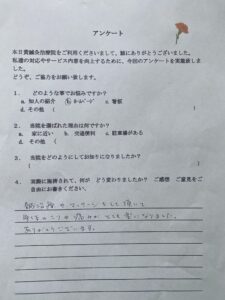 アンケート
本日貴鍼灸治療院をご利用くださいまして、誠にありがとうございました。
私達の対応やサービス内容を向上するために、今回のアンケートを実施致しま
どうぞ、ご協力をお願い致します。
1. どのような事でお悩みですか？
a. 知人の紹介 b. ホームページ c. 看板
d. その他 （
2. 当院を選ばれた理由は何ですか？
a. 家に近い b. 交通便利 c. 駐車場がある
d. その他 （
3. 当院をどのようにしてお知りになりましたか？
（
4. 実際に施術されて、何が どう変わりましたか？ ご感想 ご意見をご
自由にお書きください。
鍼治療や マッサージをして頂いて
コリや 痛みが とても 楽になりました。
ありがとうございます。